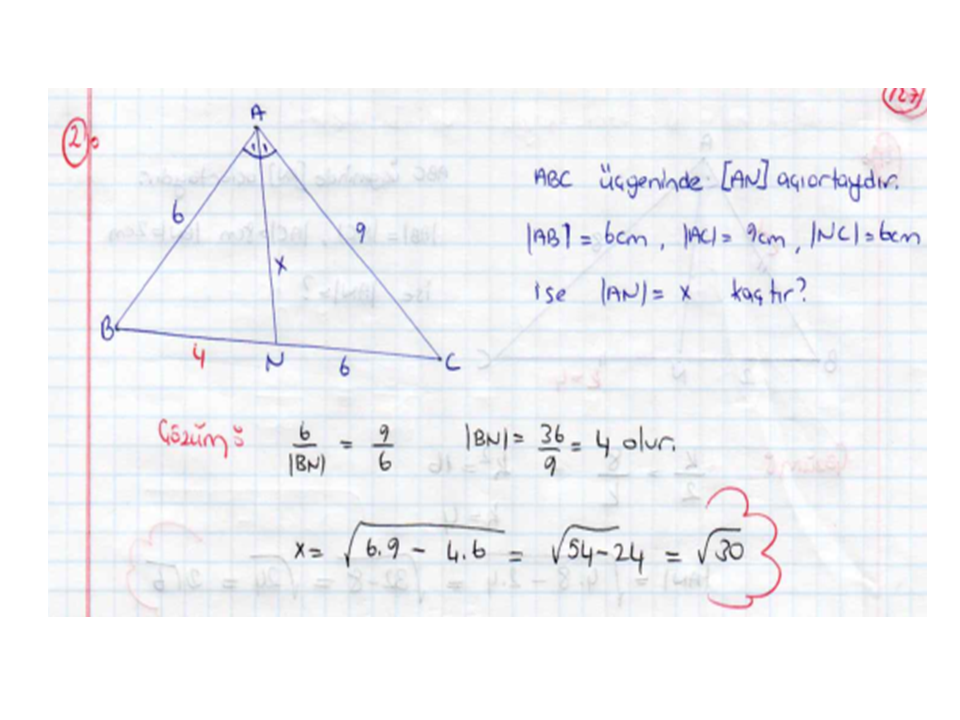 127
2.
A
6
9
x
B
4
N
6
C
ABC üçgeninde [AN] açıortaydır.
|AB| = 6cm, |AC| = 9cm, |NC| = 6cm
ise |AN| = x kaçtır?
Çözüm:
6/|BN| = 9/6 |BN| = 36/9 = 4 olur.
x = √6.9 - 4.6 = √54-24 = √30